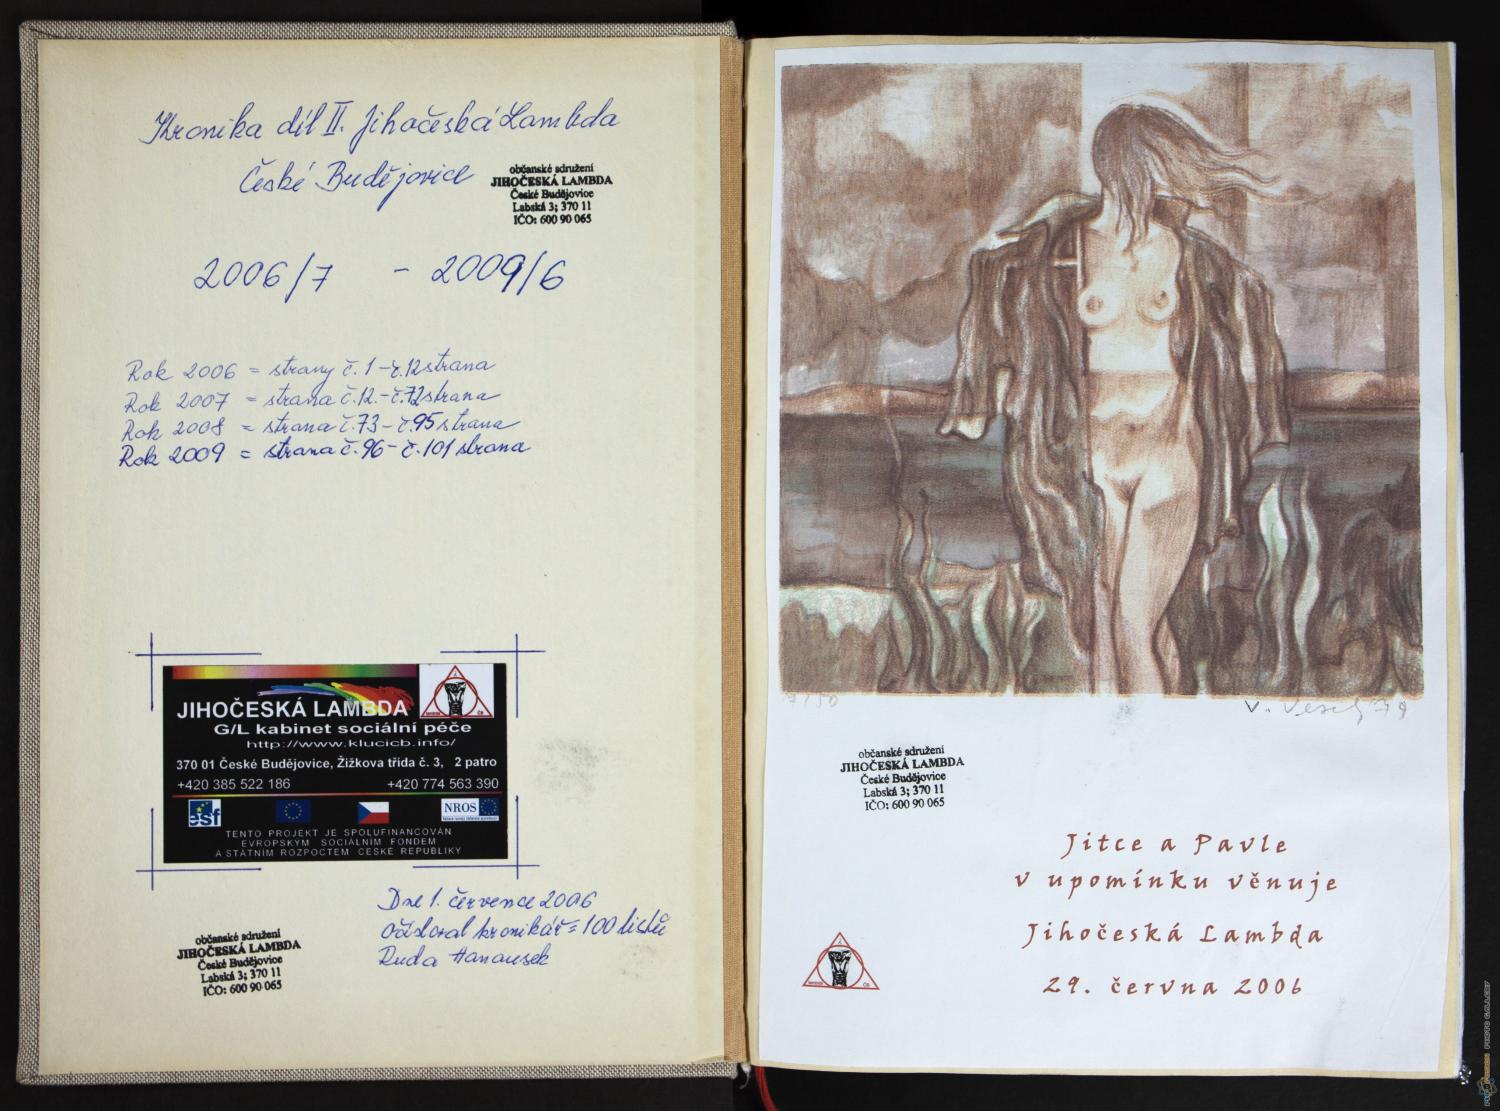 Kronika díl II. Jihočeská Lambda
České Budějovice
občanské sdružení
JIHOČESKÁ LAMBDA
České Budějovice
Labská 3; 370 11
IČO: 600 90 065
2006/7 - 2009/6
Rok 2006 = strany č. 1 - č. 12 strana
Rok 2007 = strana č. 12. - č. 72 strana
Rok 2008 = strana č. 73 - č. 95 strana
Rok 2009 = strana č. 96 - č. 101 strana
JIHOČESKÁ LAMBDA
G/L kabinet sociální péče
http://www.klucicb.info/
370 01 České Budějovice, Žižkova třída č. 3, 2 patro
+420 385 522 186 +420 774 563 390
esf NROS
TENTO PROJEKT JE SPOLUFINANCOVÁN
EVROPSKÝM SOCIÁLNÍM FONDEM
A STÁTNÍM ROZPOČTEM ČESKÉ REPUBLIKY
Dne 1. července 2006
očísloval kronikář = 100 listů
Ruda Hanousek
občanské sdružení
JIHOČESKÁ LAMBDA
České Budějovice
Labská 3; 370 11
IČO: 600 90 065
7/50
V. 79
občanské sdružení
JIHOČESKÁ LAMBDA
České Budějovice
Labská 3; 370 11
IČO: 600 90 065
Jitce a Pavle
v upomínku věnuje
Jihočeská Lambda
29. června 2006
PHOTO GALLERY